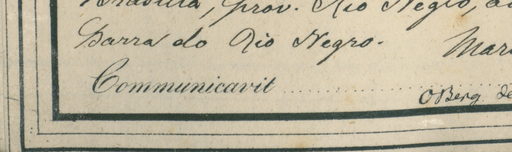 prov. Rio Negro,
Barra do Rio Negro. Mar
Communicavit
OBerg de